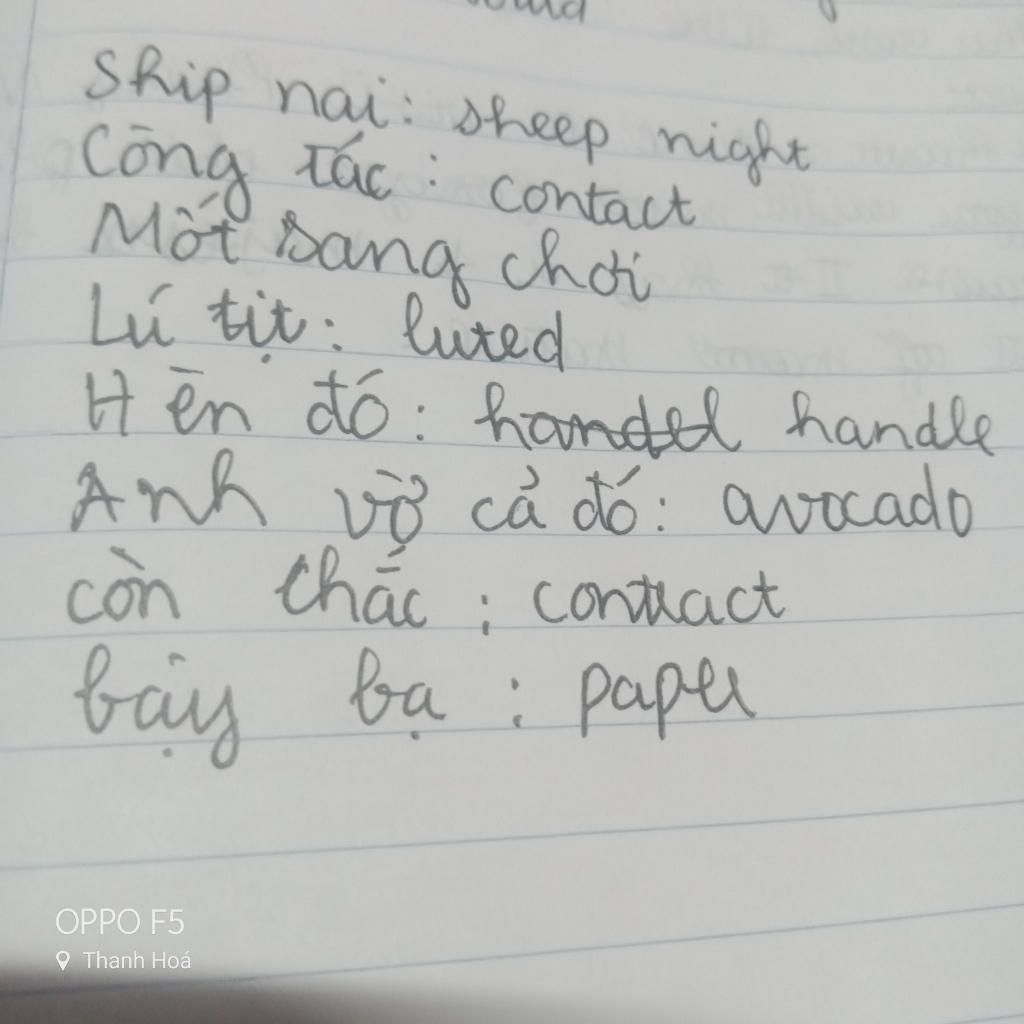 Ship nai: sheep night
Công tác: contact
Mốt sang chơi
Lú tịt: luted
Hên đó: handel handle
Anh vỡ cả đó: avocado
còn chắc: contract
bậy bạ: paper
OPPO F5
Thanh Hoá